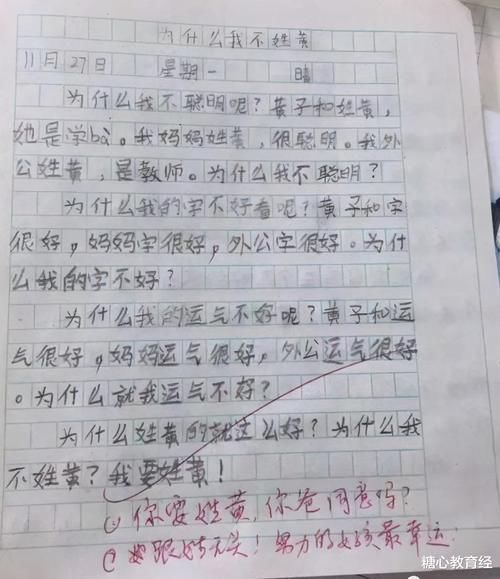 为什么我不姓黄
11月27日 星期一 晴
为什么我不聪明呢?黄子和姓黄,
她是学bà。我妈妈姓黄,很聪明。我外
公姓黄,是教师。为什么我不聪明?
为什么我的字不好看呢?黄子和字
很好,妈妈字很好,外公字很好。为什
么我的字不好?
为什么我的运气不好呢?黄子和运
气很好,妈妈运气很好,外公运气很好
。为什么就我运气不好?
为什么姓黄的就这么好?为什么我
不姓黄?我要姓黄!
你要姓黄,你爸同意吗?
跟姓无关!努力的女孩最幸运!
糖心教育经